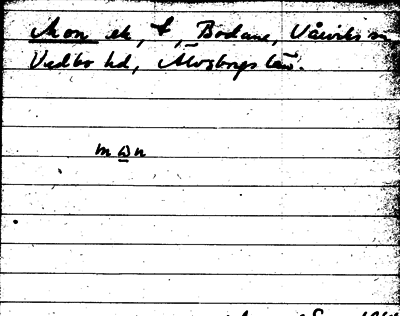 Mon ek, t, Bodane, Vårviks sn,
Vedbo hd, Älvsborgs län.
mωn